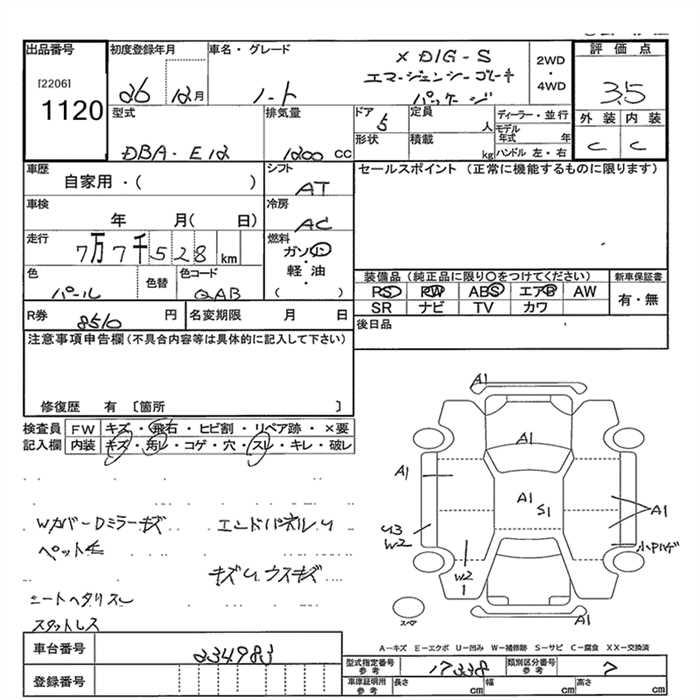 出品番号
[2206]
1120
初度登録年月
26 12月
車名・グレード
ノート
X DIG-S
エマージェンシーブレーキ
パッケージ
2WD
・
4WD
評価点
3.5
外装 内装
C C
型式
DBA・E12
排気量
1200 cc
ドア
5
定員
人
ディーラー・並行
モデル年式 年
形状
積載
kg
ハンドル 左・右
車歴
自家用・( )
シフト
AT
セールスポイント (正常に機能するものに限ります)
車検
年 月( 日)
冷房
AC
走行
7万7千528km
燃料
ガソリン
・
軽・油
( )
色
パール
色替
色コード
QAB
装備品 (純正品に限り○をつけてください)
新車保証書
PS PW ABS エアB AW
有・無
SR ナビ TV カワ
R券
8510 円
名変期限 月 日
後日品
注意事項申告欄 (不具合内容等は具体的に記入して下さい)
修復歴 有 [箇所 ]
検査員
記入欄
FW キズ・飛石・ヒビ割・リペア跡・×要
内装 キズ・汚レ・コゲ・穴・スレ・キレ・破レ
WカバーDミラーキズ エンドパネルU
ペット毛
キズUウスキズ
シートヘタリスレ
スタットレス
A1
A1
A1
A1
S1
A1
U3
W2
W2
1
小キズ
A1
スペア
A-キズ E-エクボ U-凹み W-補修跡 S-サビ C-腐食 XX-交換済
車台番号
234983
登録番号
型式指定番号
参考
17338
類別区分番号
参考
7
車庫証明用
参考
長さ cm
幅 cm
高さ cm